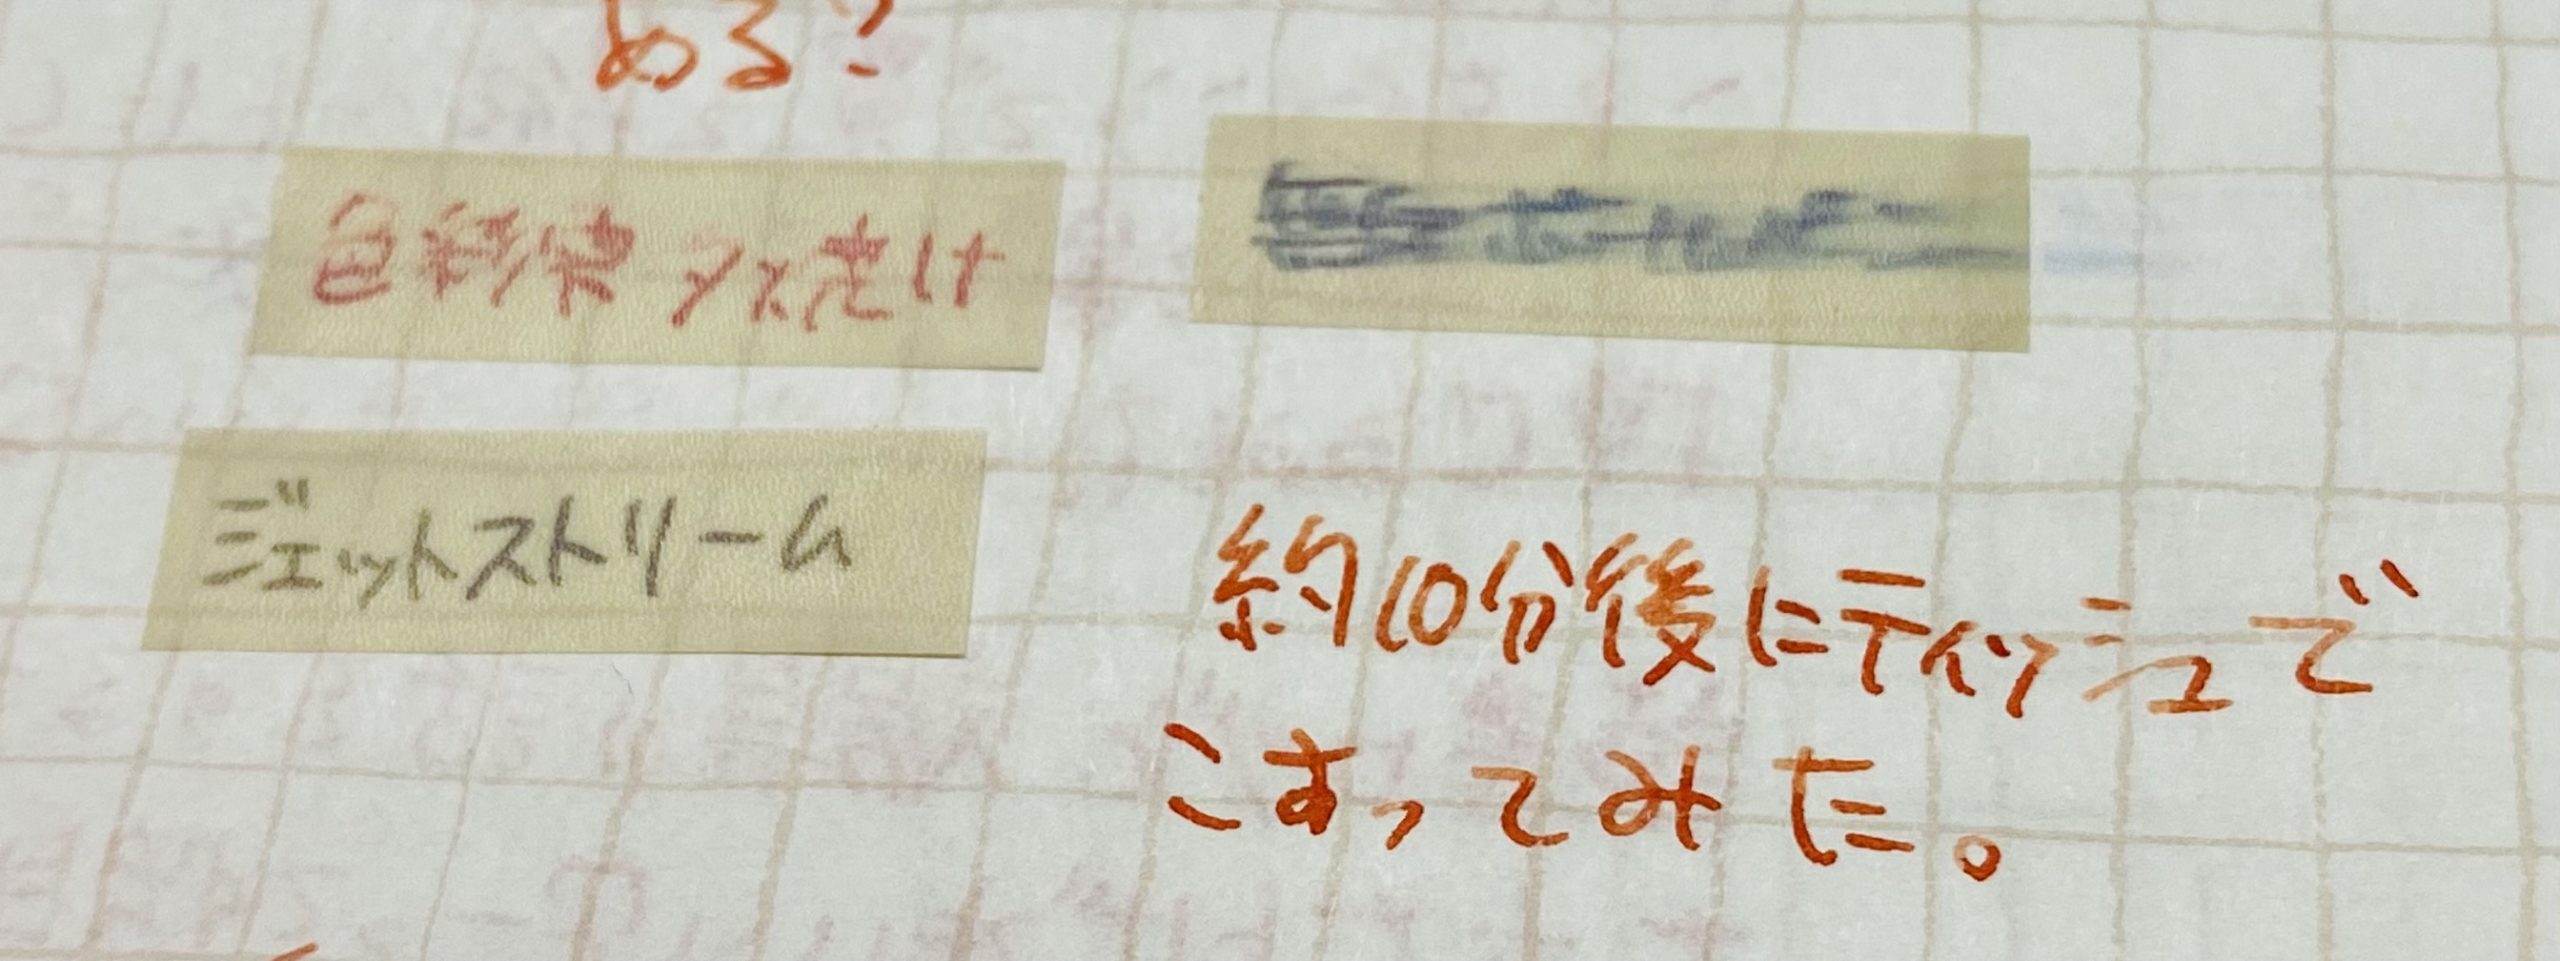 める?
色彩雫 夕焼け
ジェットストリーム
約10分後にティッシュで
こすってみた。